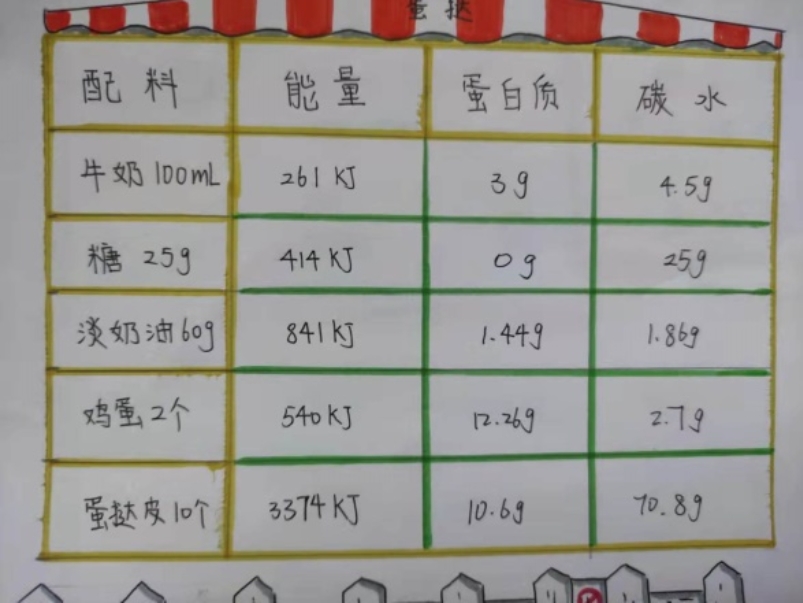 蛋挞
配料 能量 蛋白质 碳水
牛奶100mL 261KJ 3g 4.5g
糖 25g 414KJ 0g 25g
淡奶油60g 841KJ 1.44g 1.86g
鸡蛋2个 540KJ 12.26g 2.7g
蛋挞皮10个 3374KJ 10.6g 70.8g